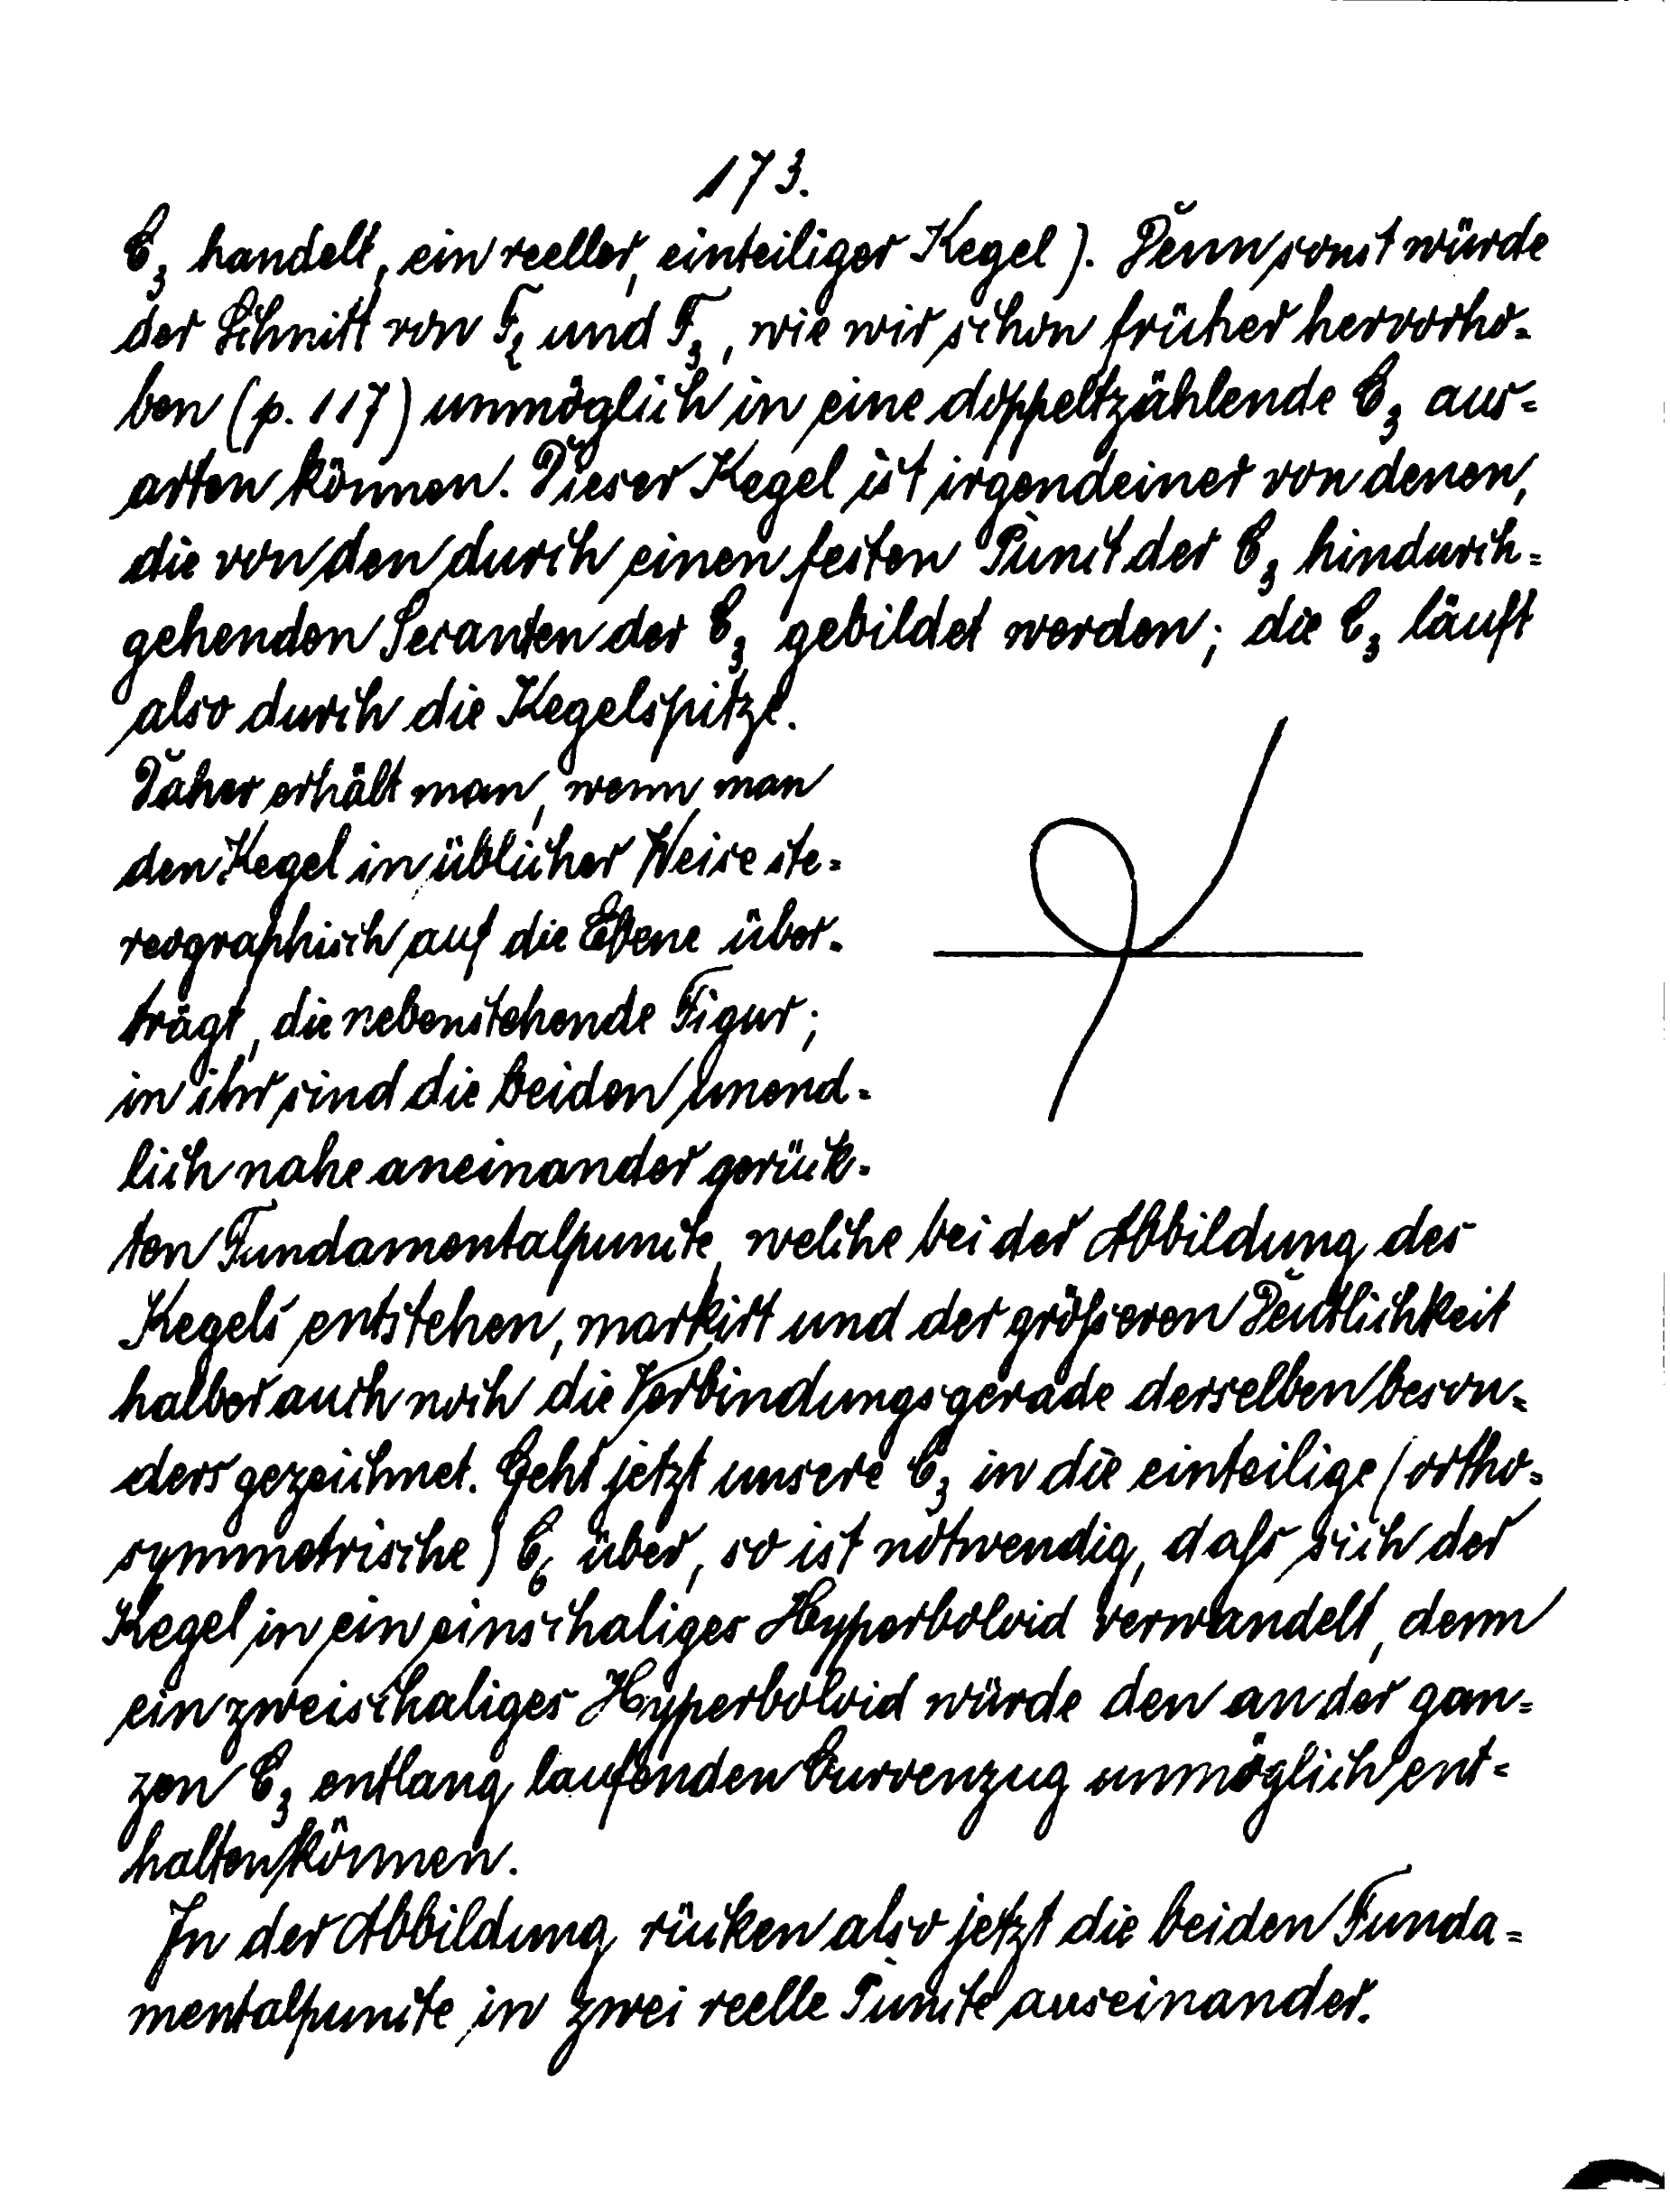 173.
C₃ handelt, ein reeller, einteiliger Kegel). Denn sonst würde
der Schnitt von F₂ und F₃, wie wir schon früher hervorho-
ben (p. 117) unmöglich in eine doppeltzählende C₃ aus-
arten können. Dieser Kegel ist irgendeiner von denen,
die von den durch einen festen Punct der C₃ hindurch-
gehenden Secanten der C₃ gebildet werden; die C₃ läuft
also durch die Kegelspitze.
Daher erhält man, wenn man
den Kegel in üblicher Weise ste-
reographisch auf die Ebene über-
trägt, die nebenstehende Figur;
in ihr sind die beiden unend-
lich nahe aneinander gerück-
ten Fundamentalpuncte, welche bei der Abbildung des
Kegels entstehen, markirt und der größeren Deutlichkeit
halber auch noch die Verbindungsgerade derselben beson-
ders gezeichnet. Geht jetzt unsere C₃ in die einteilige (ortho-
symmetrische) C₆ über, so ist notwendig, daß sich der
Kegel in ein einschaliges Hyperboloid verwandelt, denn
ein zweischaliges Hyperboloid würde den an der gan-
zen C₃ entlang laufenden Curvenzug unmöglich ent-
halten können.
In der Abbildung rücken also jetzt die beiden Funda-
mentalpuncte in zwei reelle Puncte auseinander.